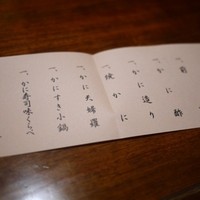 一、前酢
一、かに造り
一、焼かに
一、かに天婦羅
一、かにすき小鍋
一、かに寿司味くらべ